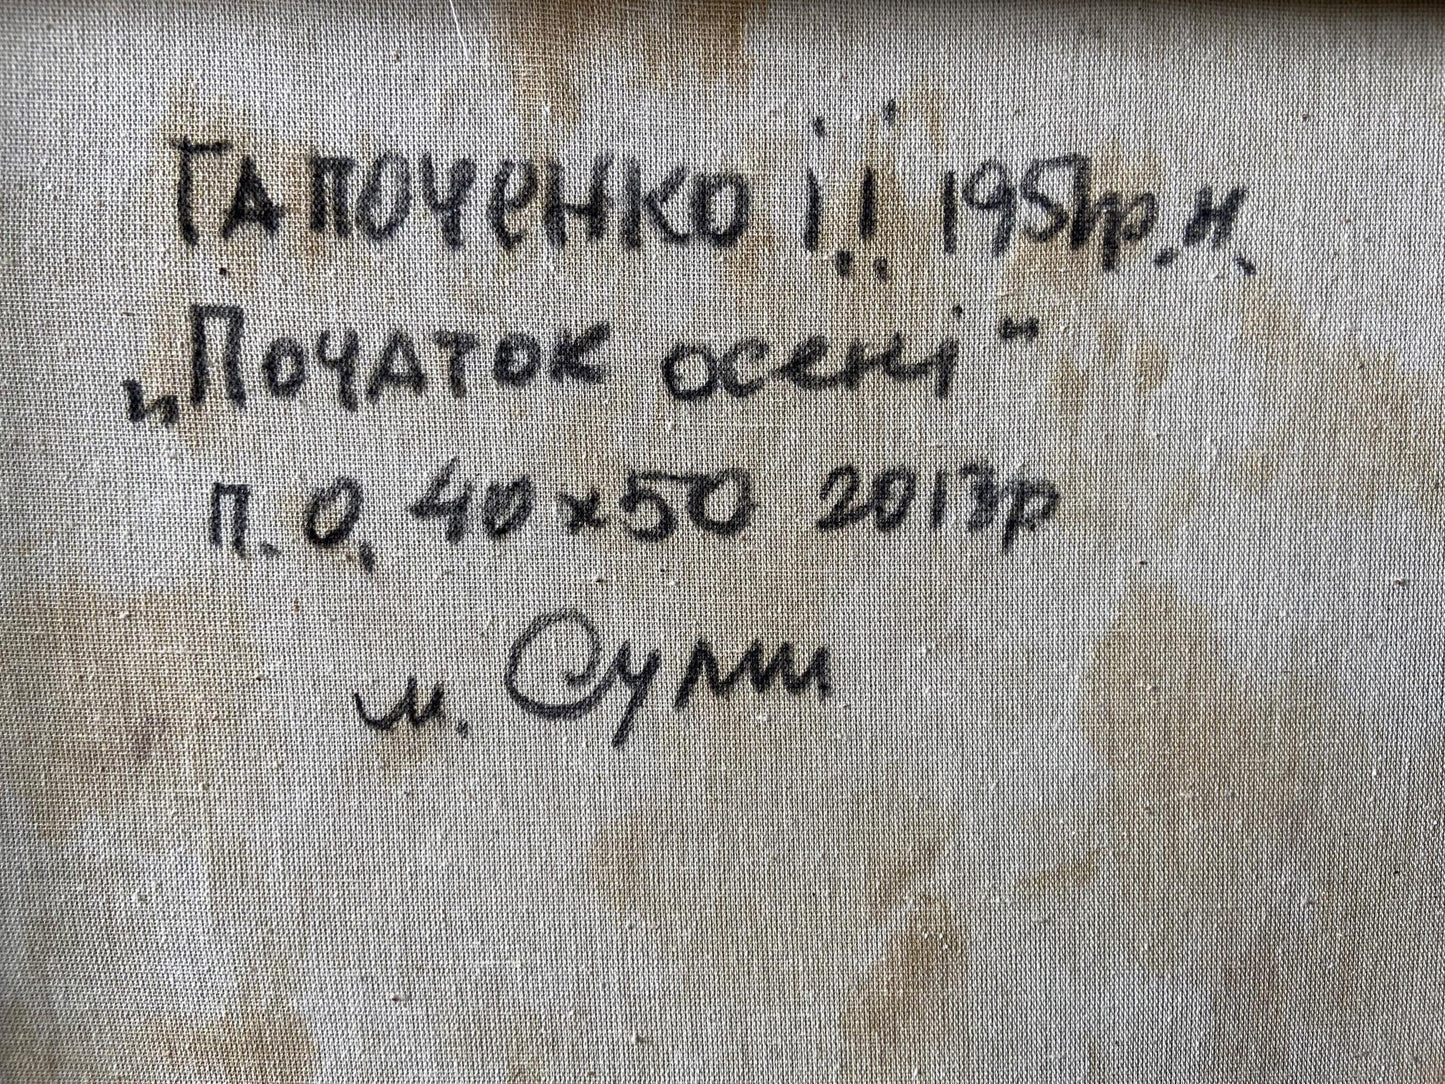 ГАПОЧЕНКО І.І. 1951р.н.
„Початок осені"
п.о, 40х50 2013р
м. Суми